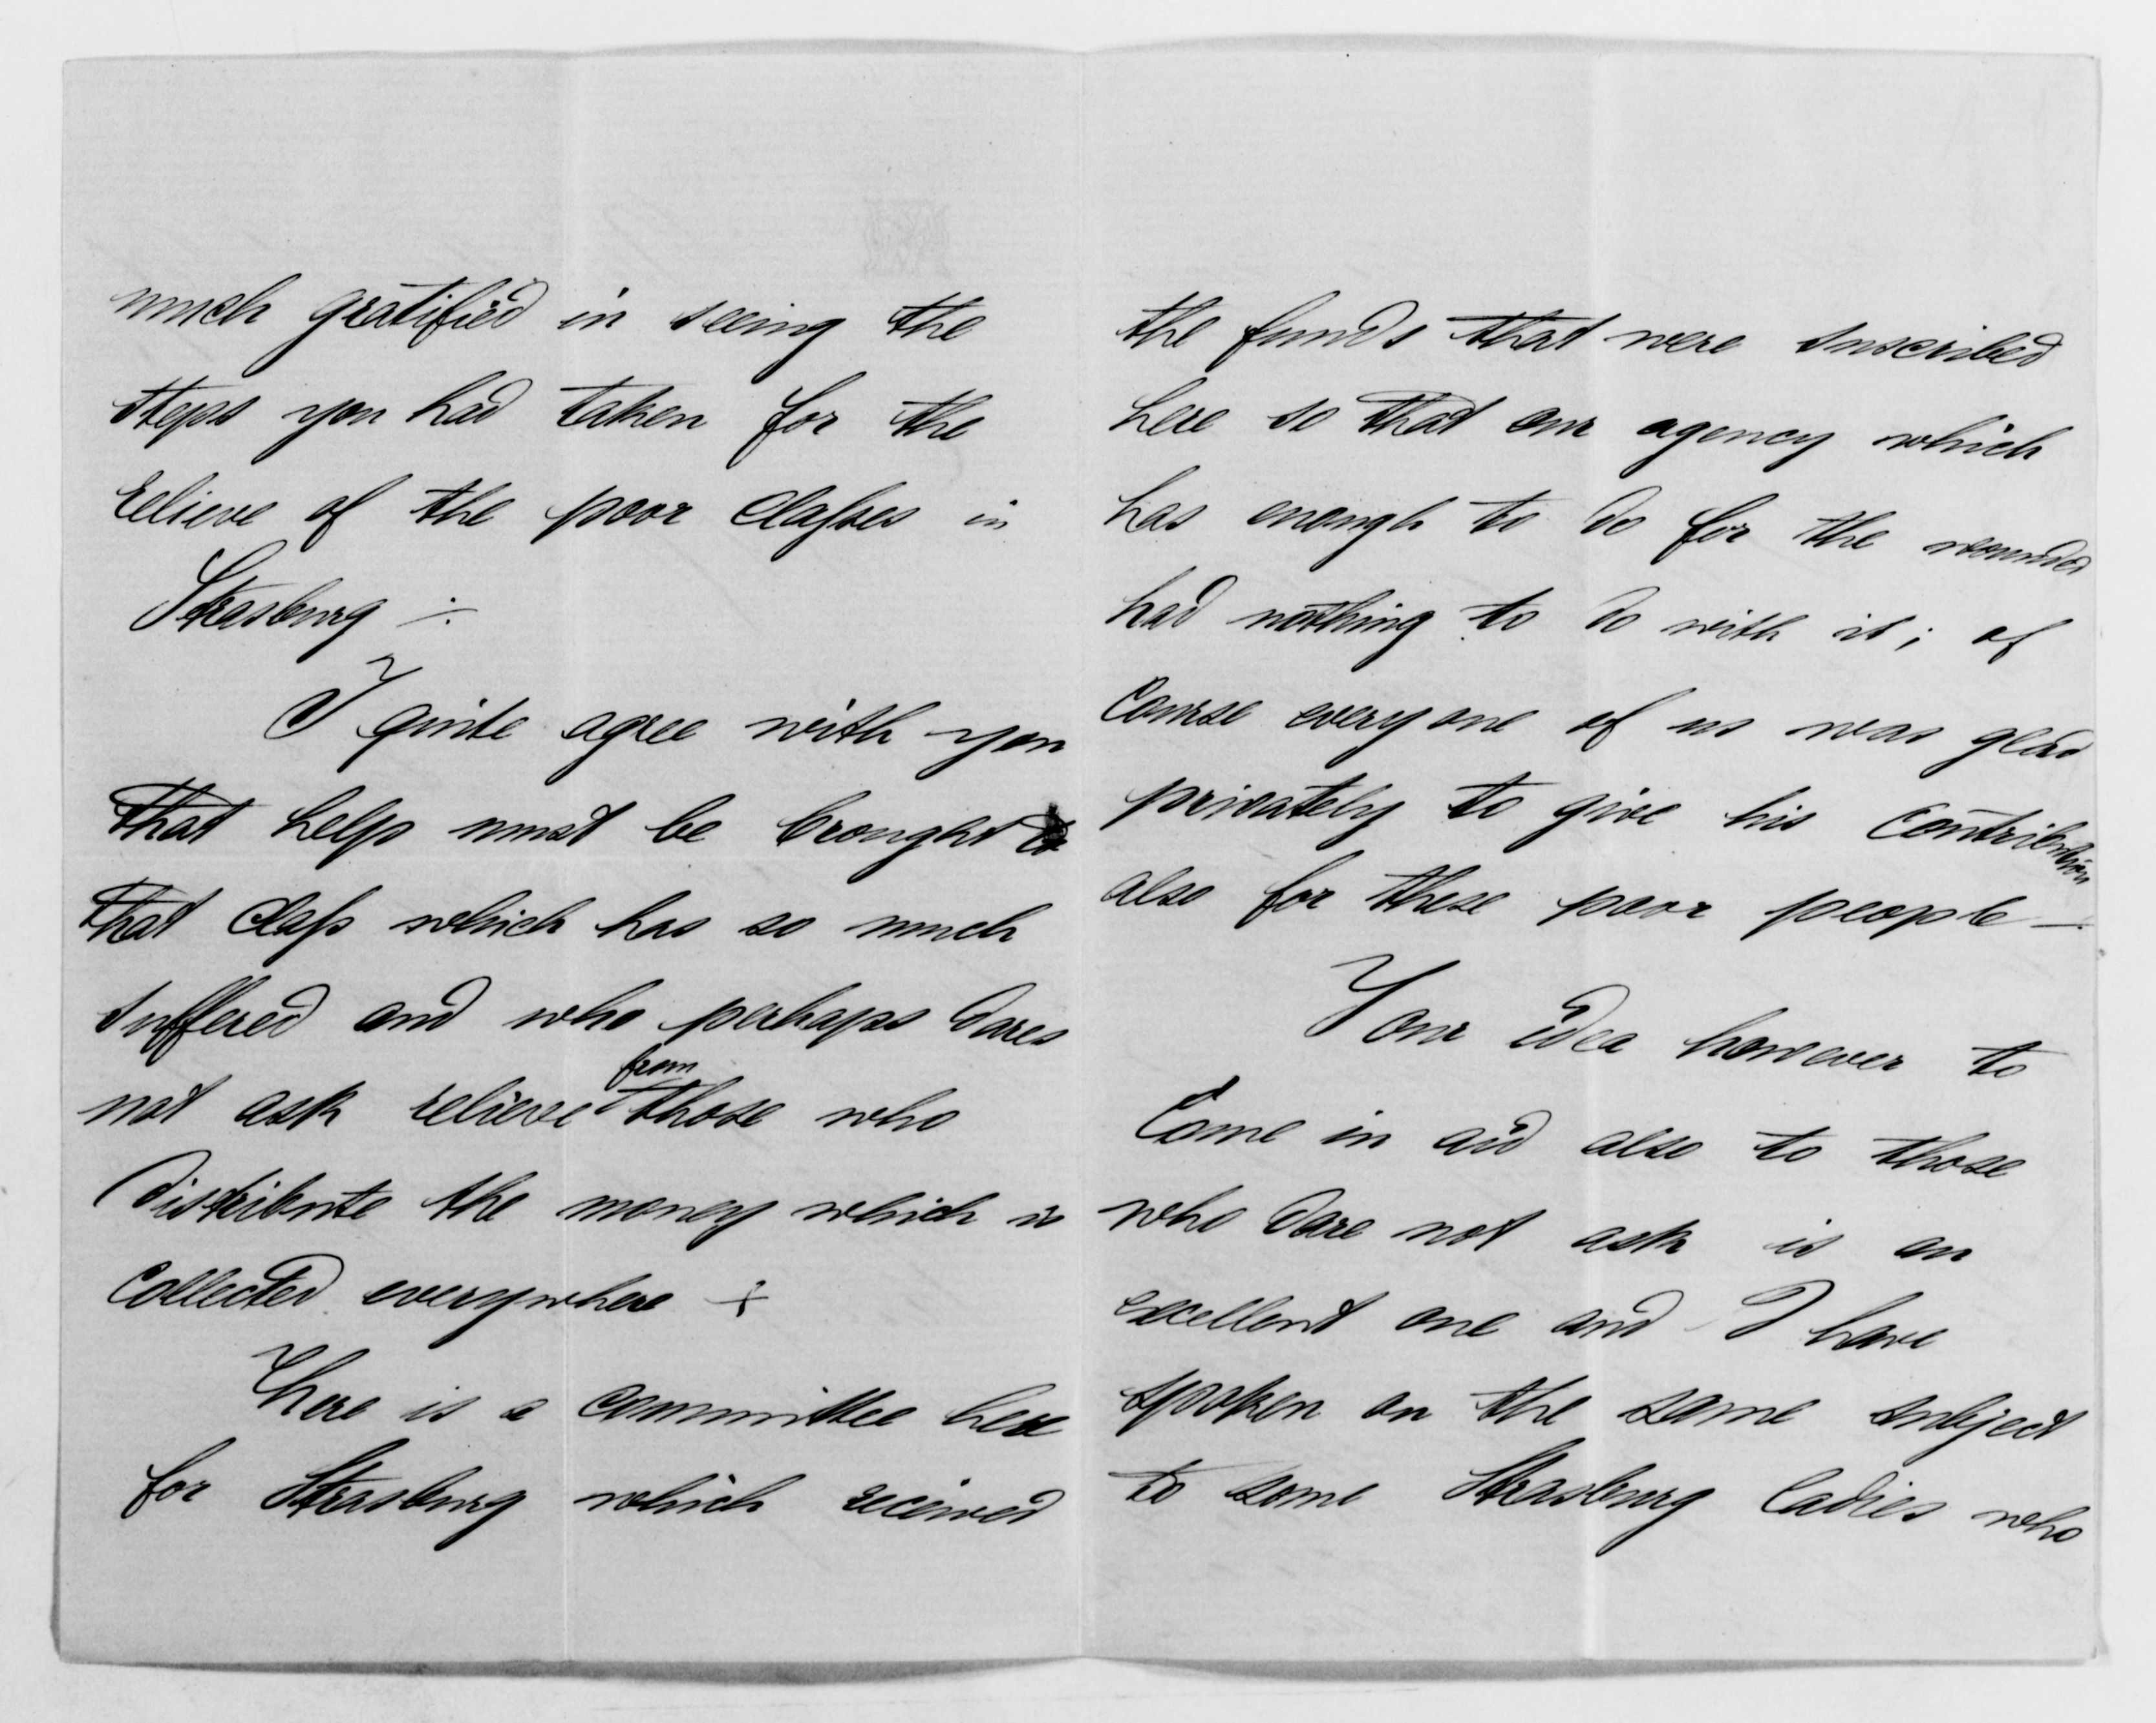 much gratified in seeing the
steps you had taken for the
relieve of the poor classes in
Strasburg -
I quite agree with you
that help must be brought to
that class which has so much
suffered and who perhaps dares
not ask relieve from those who
distribute the money which is
collected everywhere -
There is a committee here
for Strasburg which received
the funds that were suscribed
here so that our agency which
has enough to do for the wounded
had nothing to do with it; of
course every one of us was glad
privately to give his contribution
also for these poor people -
Your idea however to
come in aid also to those
who dare not ask is an
excellent one and I have
spoken on the same subject
to some Strasburg ladies who